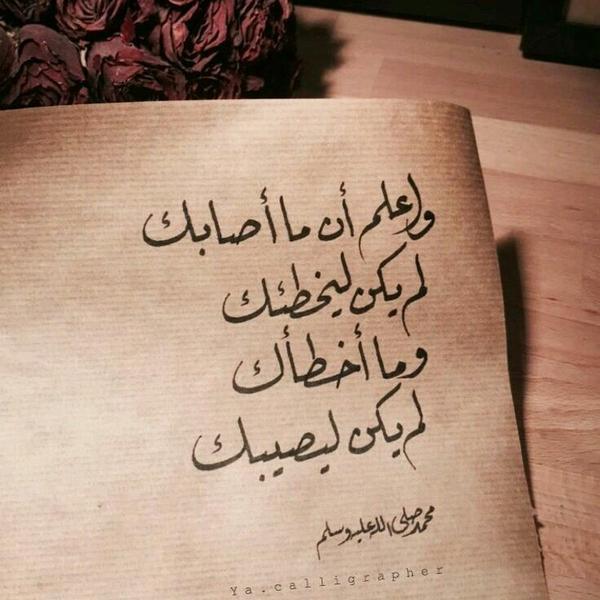 واعلم أن ما أصابك
لم يكن ليخطئك
وما أخطأك
لم يكن ليصيبك
محمد صلى الله عليه وسلم
Ya.calligrapher